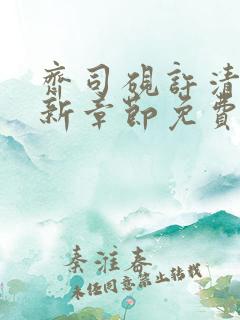 齋司硯許清
新章節免費
秦淮春
未经同意禁止转载